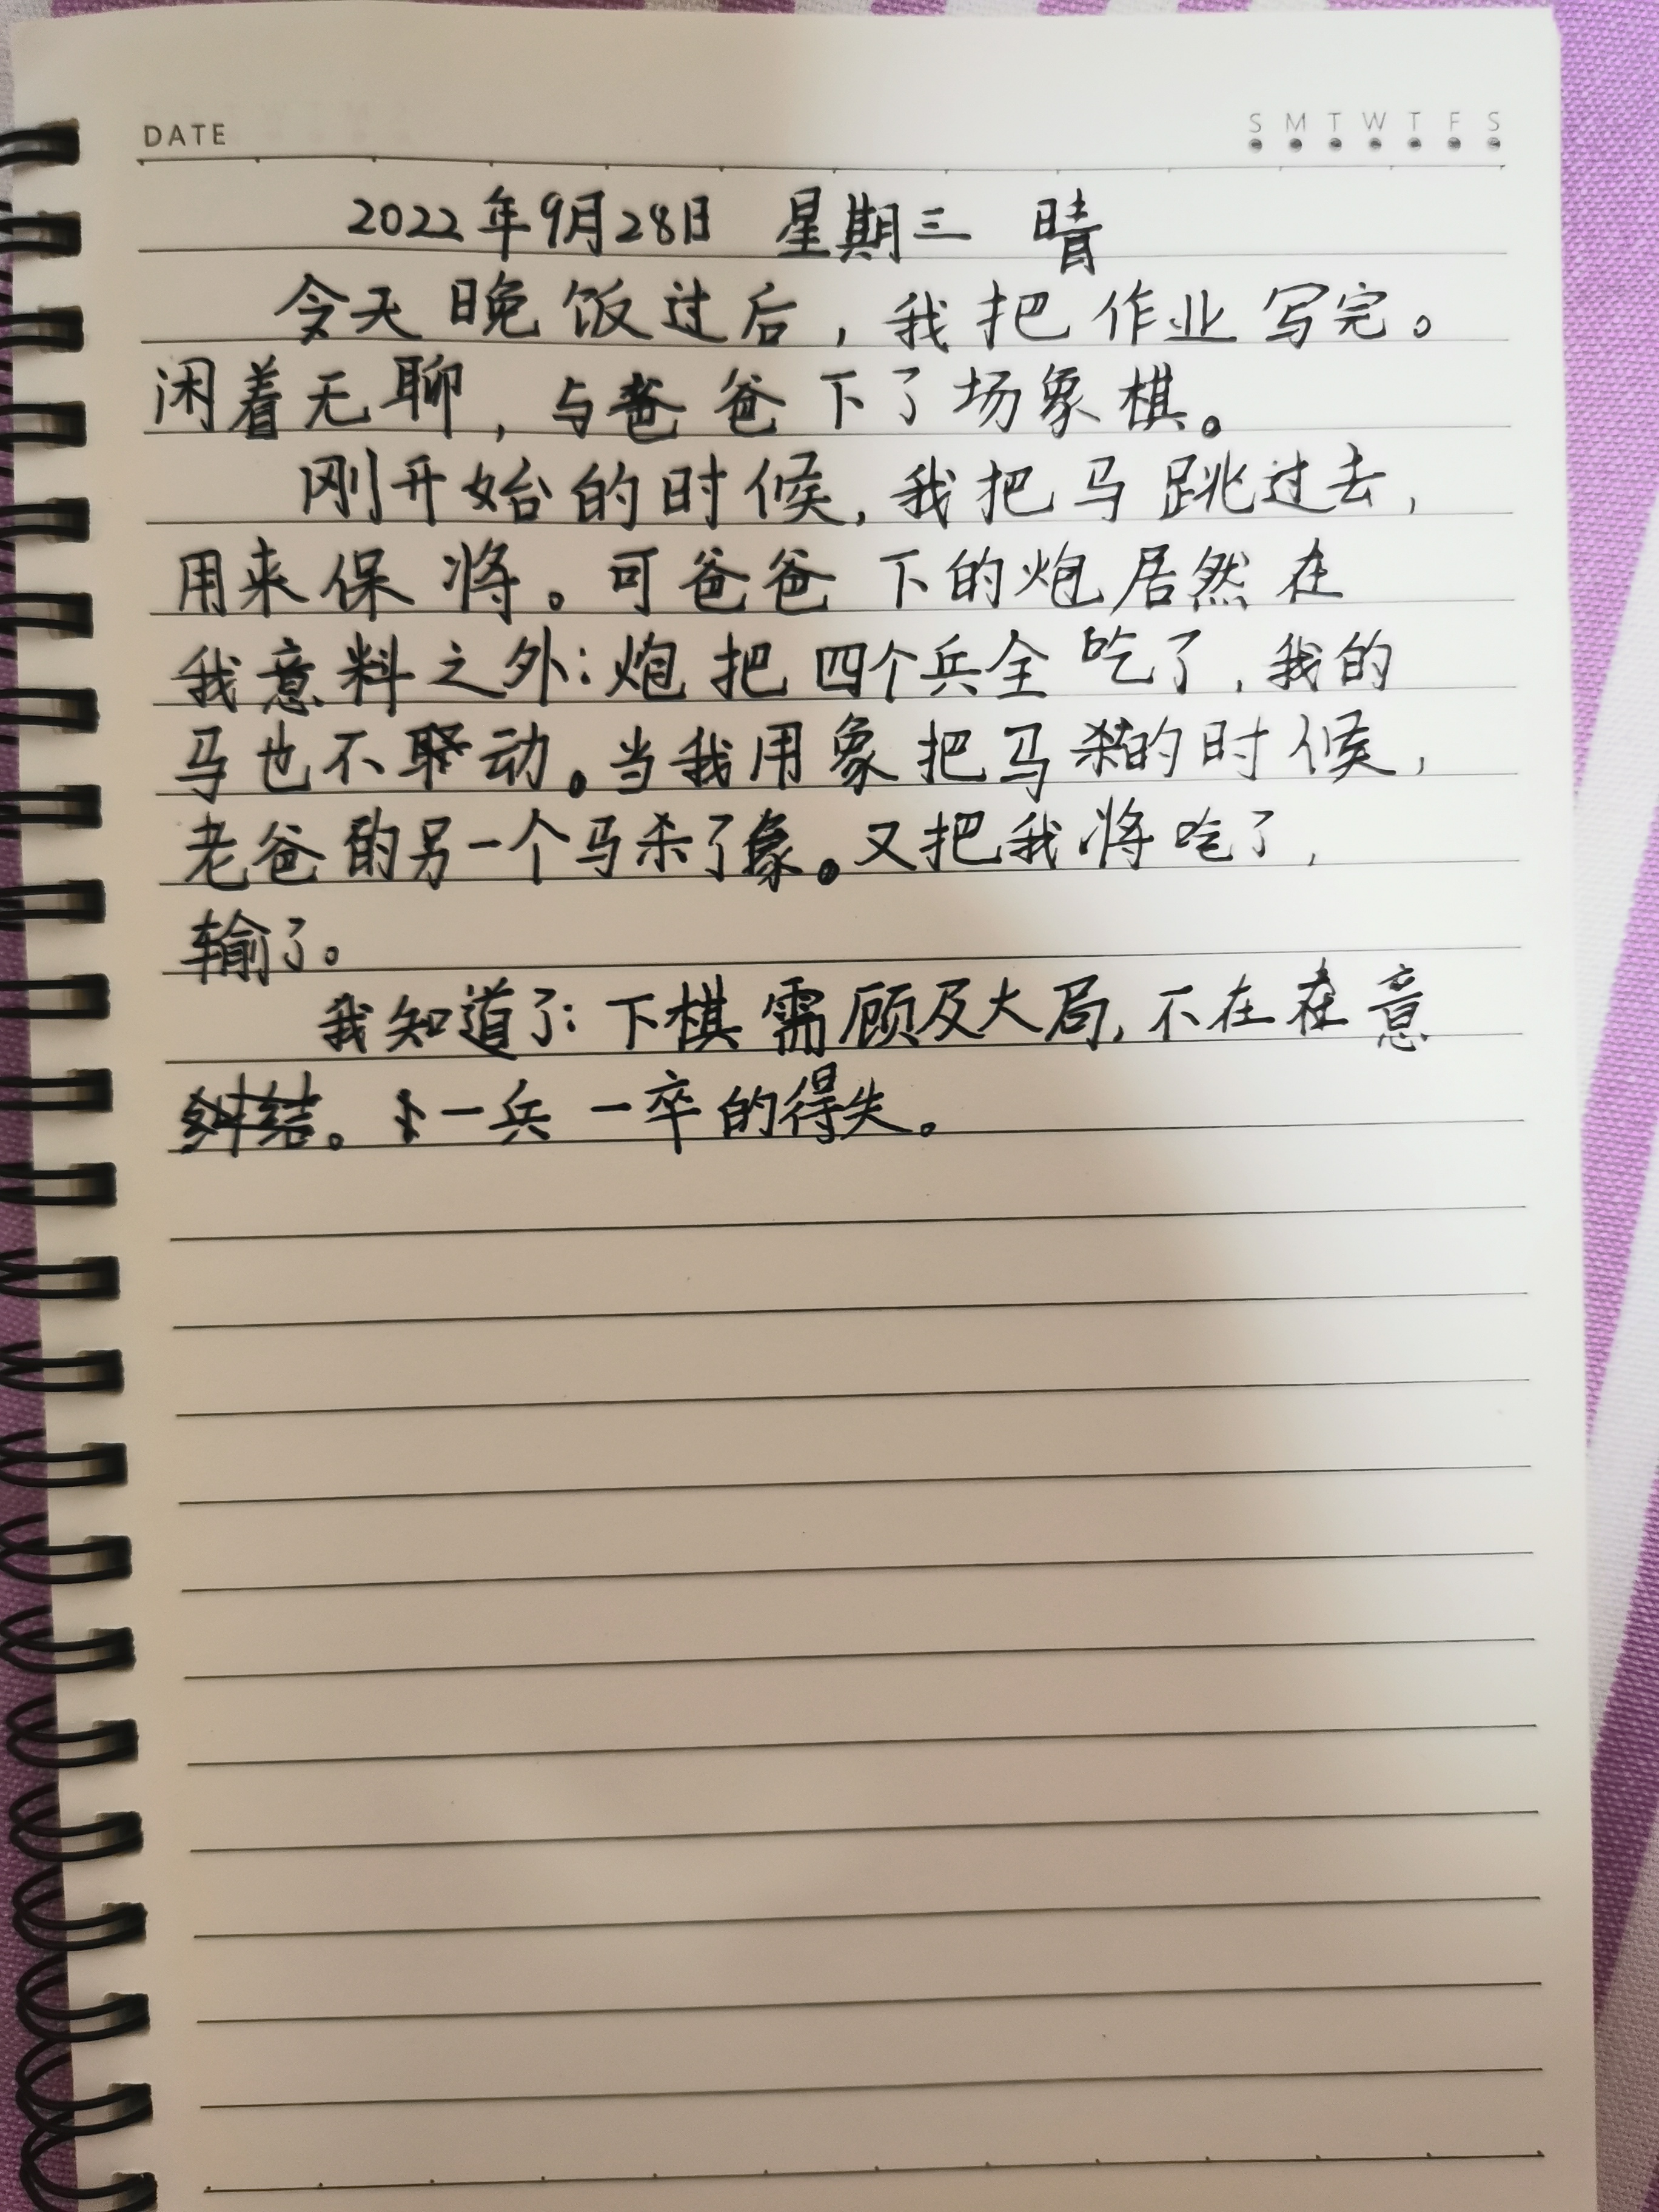 DATE
S M T W T F S
2022年9月28日 星期三 晴
今天晚饭过后，我把作业写完。
闲着无聊，与爸爸下了场象棋。
刚开始的时候，我把马跳过去，
用来保将。可爸爸下的炮居然在
我意料之外：炮把四个兵全吃了，我的
马也不敢动。当我用象把马杀的时候，
老爸的另一个马杀了象。又把我将吃了，
输了。
我知道了：下棋需顾及大局，不在在意
一兵一卒的得失。